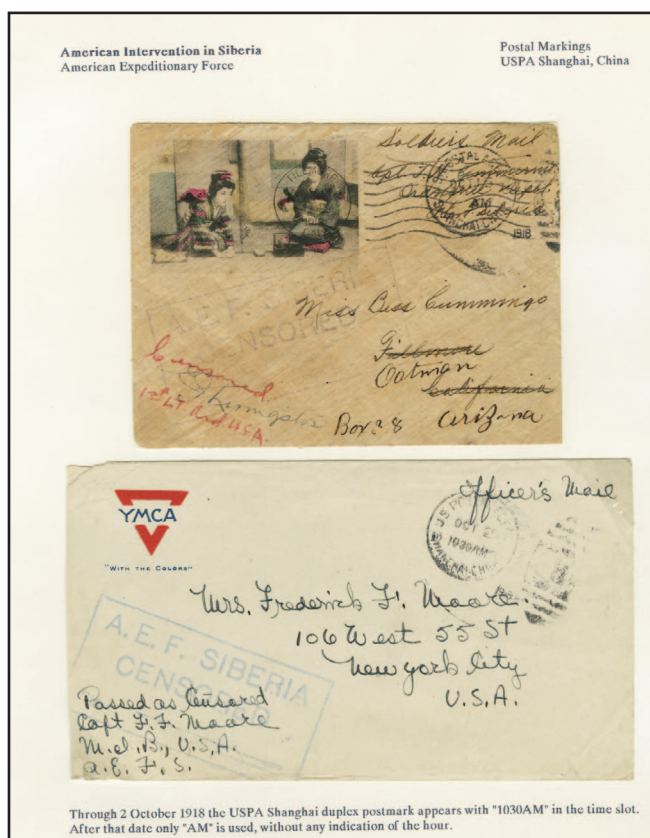 American Intervention in Siberia
American Expeditionary Force
Postal Markings
USPA Shanghai, China
Soldiers Mail
AM
SHANGHAI
1918
A.E.F. SIBERI
ENSORED
Miss Bess Cummings
Fillmore
Oatman
California
Box 28 Arizona
Censored
1st LT USA.
YMCA
"WITH THE COLORS"
Officer's Mail
U S PO
OCT 2
1030AM
SHANGHAI-CHI
Mrs. Frederick F. Moore
106 West 55 St
New York City
U.S.A.
A.E.F. SIBERIA
CENSORED
Passed as Censored
Capt F.F. Moore
M.I.B., U.S.A.
A.E.F.S.
Through 2 October 1918 the USPA Shanghai duplex postmark appears with "1030AM" in the time slot.
After that date only "AM" is used, without any indication of the hour.